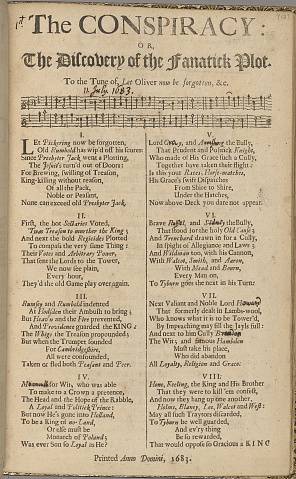 The CONSPIRACY:
OR,
The Discovery of the Fanatick Plot.
To the Tune of, Let Oliver now be forgotten, &c.
July. 1683.
I.
LEt Pickering now be forgotten,
Old Rumbold has wip'd off his score:
Since Presbyter Jack went a Plotting,
The Jesuit's turn'd out of Doors:
For Brewing, swilling of Treason,
King-killing without reason,
Of all the Pack,
Noble or Peasant,
None can exceed old Presbyter Jack.
II.
First, the hot Sectaries Voted,
Twas Treason to murther the King;
And next the bold Regicides Plotted
To compass the very same Thing:
Their Votes and Arbitrary Power,
That sent the Lords to the Tower,
We now see plain,
Every hour,
They'd the old Game play over again.
III.
Rumsey and Rumbold indented
At Hodsden their Ambush to bring;
But Heav'n and the Fire prevented,
And Providence guarded the KING:
The Whigs the Treason propounded;
But when the Trumpet sounded
For Cambridgeshire,
All were confounded,
Taken or fled both Peasant and Peer.
IV.
for Wit, who was able
To make to a Crown a pretence,
The Head and the Hope of the Rabble,
A Loyal and Politick Prince:
But now He's gone into Holland,
To be a King of no-Land,
Or else must be
Monarch of Poland;
Was ever Son so Loyal as He?
V.
Lord Gray, and Armstrong the Bully,
That Prudent and Politick Knight,
Who made of His Grace such a Cully,
Together have taken their flight:
Is this your Races, Horse-matches,
His Grace's swift Dispatches
From Shire to Shire,
Under the Hatches,
Now above Deck you dare not appear.
VI.
Brave Russel, and Sidney the Bully,
That stood for the holy Old Cause;
And Trenchard drawn in for a Cully,
In spight of Allegiance and Laws;
And Wildman too, with his Cannon,
With Walcot, Smith, and Aaron,
With Mead and Bourn,
Every Man on,
To Tyburn goes the next in his Turn:
VII.
Next Valiant and Noble Lord Howard
That formerly dealt in Lambs-wool,
Who knows what it is to be Tower'd,
By Impeaching may fill the Jayls full:
And next to him Cully Brandon
The Wit, and famous Hambden
Must take his place,
Who did abandon
All Loyalty, Religion and Grace.
VIII.
Hone, Keeling, the King and His Brother
That they were to kill 'em confest,
And now they hang up one another,
Holms, Blaney, Lee, Walcot and West:
May all such Traytors discarded,
To Tyburn be well guarded,
And ev'ry thing
Be so rewarded,
That would oppose so Gracious a KING
Printed Anno Domini, 1683.